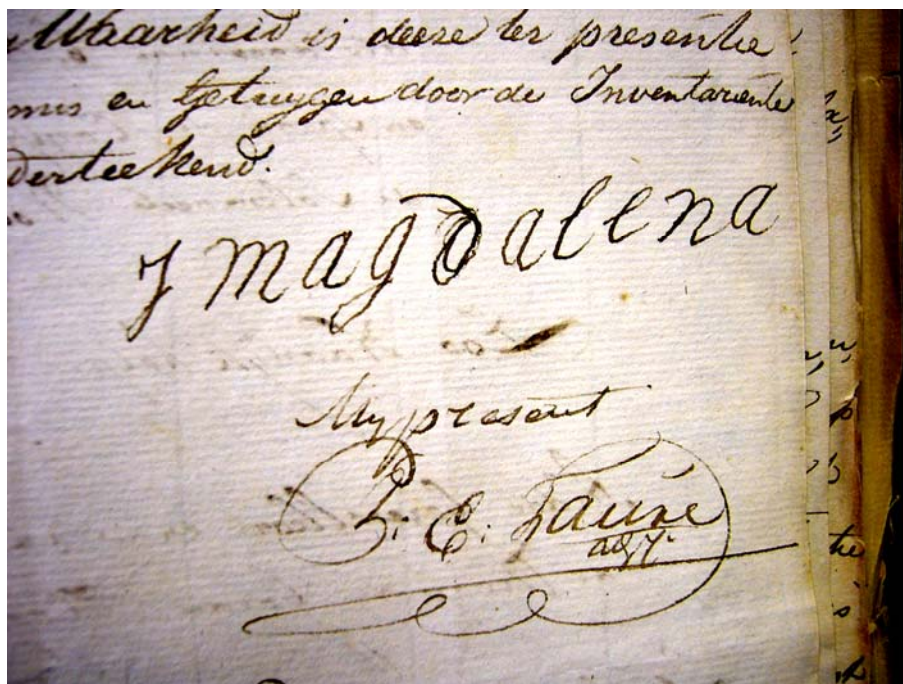 Waarheid is deeze ter presentie
mis en Getuygen door de Inventariente
derteekend.
J magdalena
My present
P. E. Faure